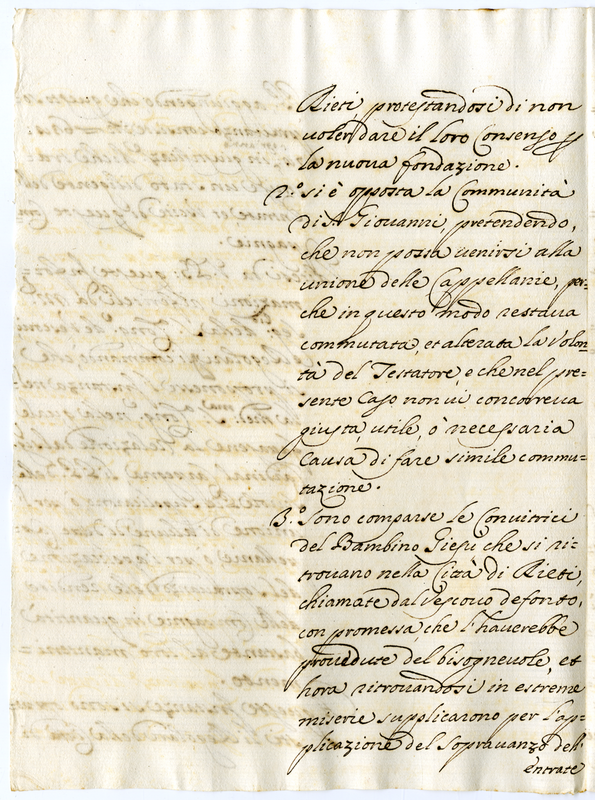 Rieti, protestandosi di non
voler dare il loro Consenso p
la nuova fondazione.
2.º Si è opposta la Communità
di S. Giovanni, pretendendo,
che non possa venirsi alla
unione delle Cappellanie, per=
che in questo modo restava
commutata, et alterata la Volon=
tà del Testatore, e che nel pre=
sente Caso non vi concorreva
giusta, utile, ò necessaria
Causa di fare simile commu=
tazione.
3.º Sono comparse le Convitrici
del Bambino Giesù che si ri=
trovano nella Città di Rieti,
chiamate dal Vescovo defonto,
con promessa che l'haverebbe
provedute del bisognevole, et
hora ritrovandosi in estreme
miserie supplicarono per l'ap=
plicazione del Sopravanzo dell'
entrate